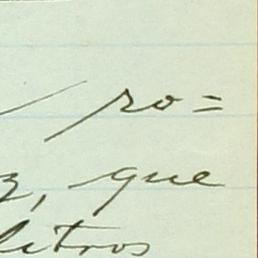 ro=
z, que
litros